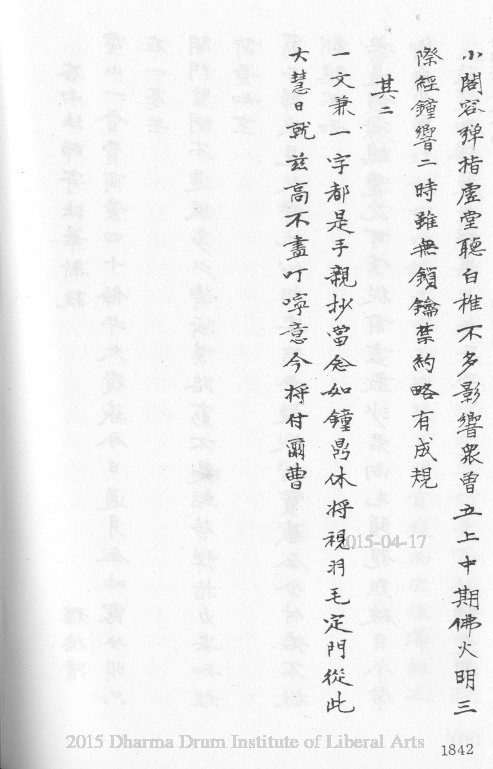 小閣容彈指虛堂聽白椎不多影響衆曾五上中期佛火明三
際經鐘響二時雖無鎖鑰禁約略有成規
其二
一文兼一字都是手親抄當念如鐘鼎休將視羽毛定門從此
大慧日就兹高不盡叮嚀意今將付爾曹
2015-04-17
2015 Dharma Drum Institute of Liberal Arts
1842